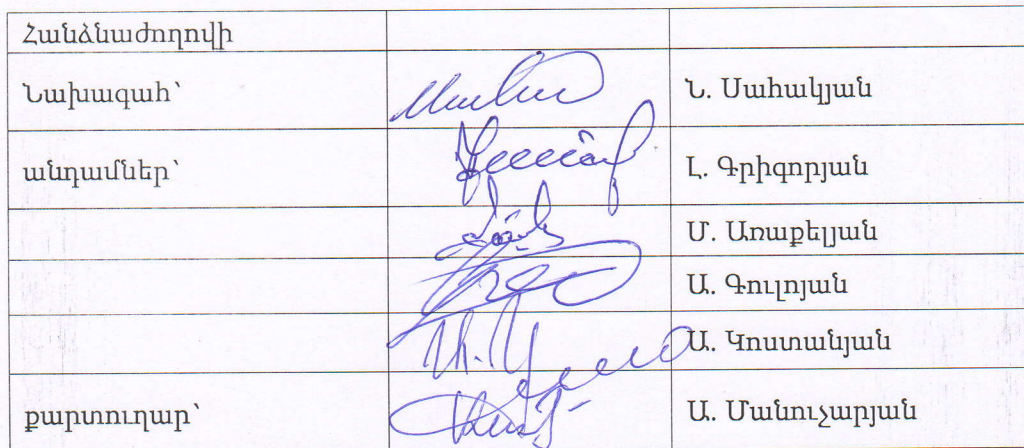 Հանձնաժողովի
Նախագահ՝ Ն. Սահակյան
անդամներ՝ Լ. Գրիգորյան
Մ. Առաքելյան
Ա. Գուլոյան
Ա. Կոստանյան
քարտուղար՝ Ա. Մանուչարյան